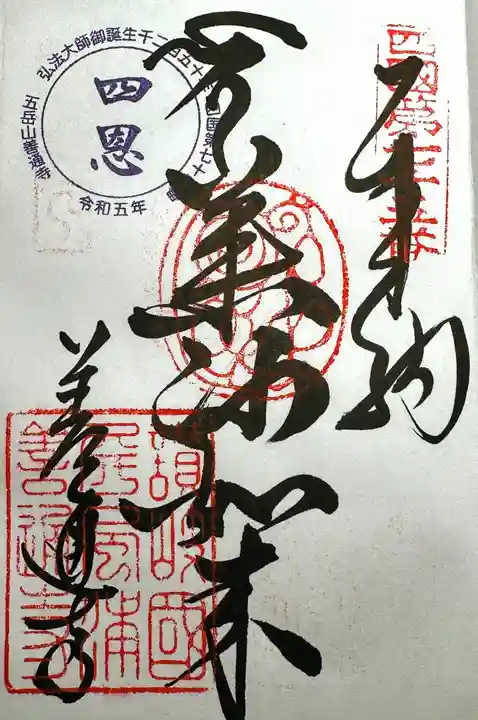 四國第七十五番
奉納
薬師如来
善通寺
弘法大師御誕生千二百五十年
四恩
五岳山善通寺
令和五年
讃岐國
屏風浦
善通寺